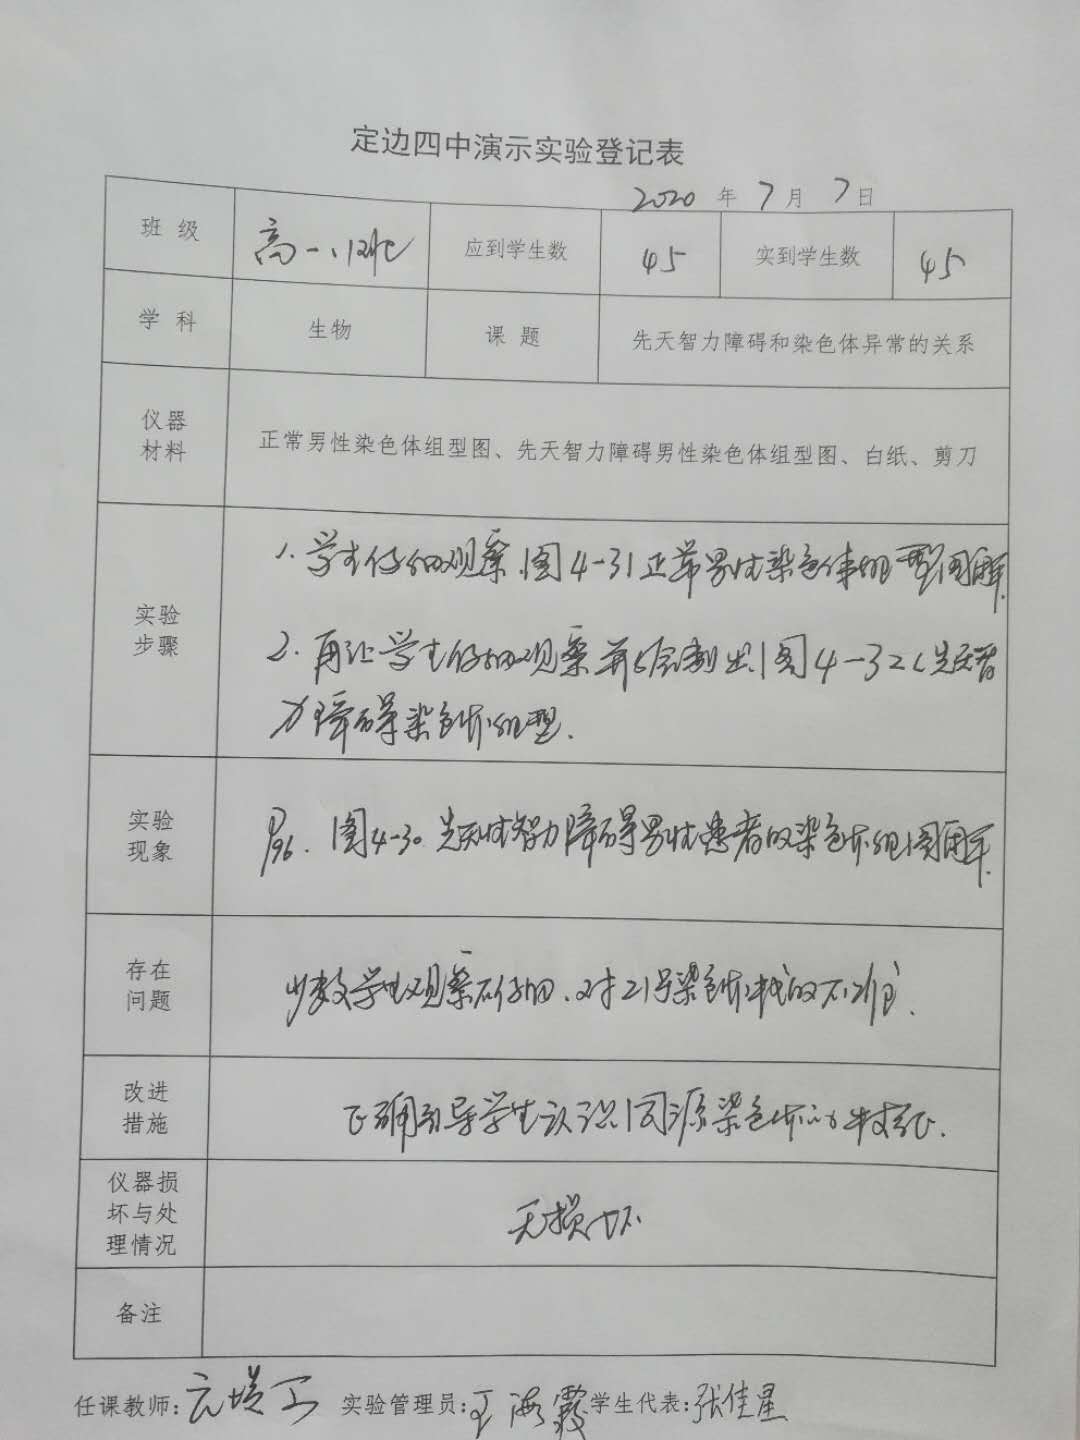 定边四中演示实验登记表
2020 年 7 月 7 日
班级 高一、12班 应到学生数 45 实到学生数 45
学科 生物 课题 先天智力障碍和染色体异常的关系
仪器
材料
正常男性染色体组型图、先天智力障碍男性染色体组型图、白纸、剪刀
实验
步骤
1. 学生仔细观察图4-31正常男性染色体组型图解.
2. 再让学生仔细观察并绘制出图4-32先天智
力障碍染色体组型.
实验
现象
P96. 图4-30 先天性智力障碍男性患者的染色体组图解.
存在
问题
少数学生观察不仔细、对21号染色体找的不准.
改进
措施
正确引导学生认识同源染色体的特征.
仪器损
坏与处
理情况
无损坏
备注
任课教师: 实验管理员:王海霞 学生代表:张佳星